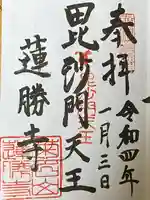 奉拝
令和四年
一月三日
毘沙門天王
蓮勝寺